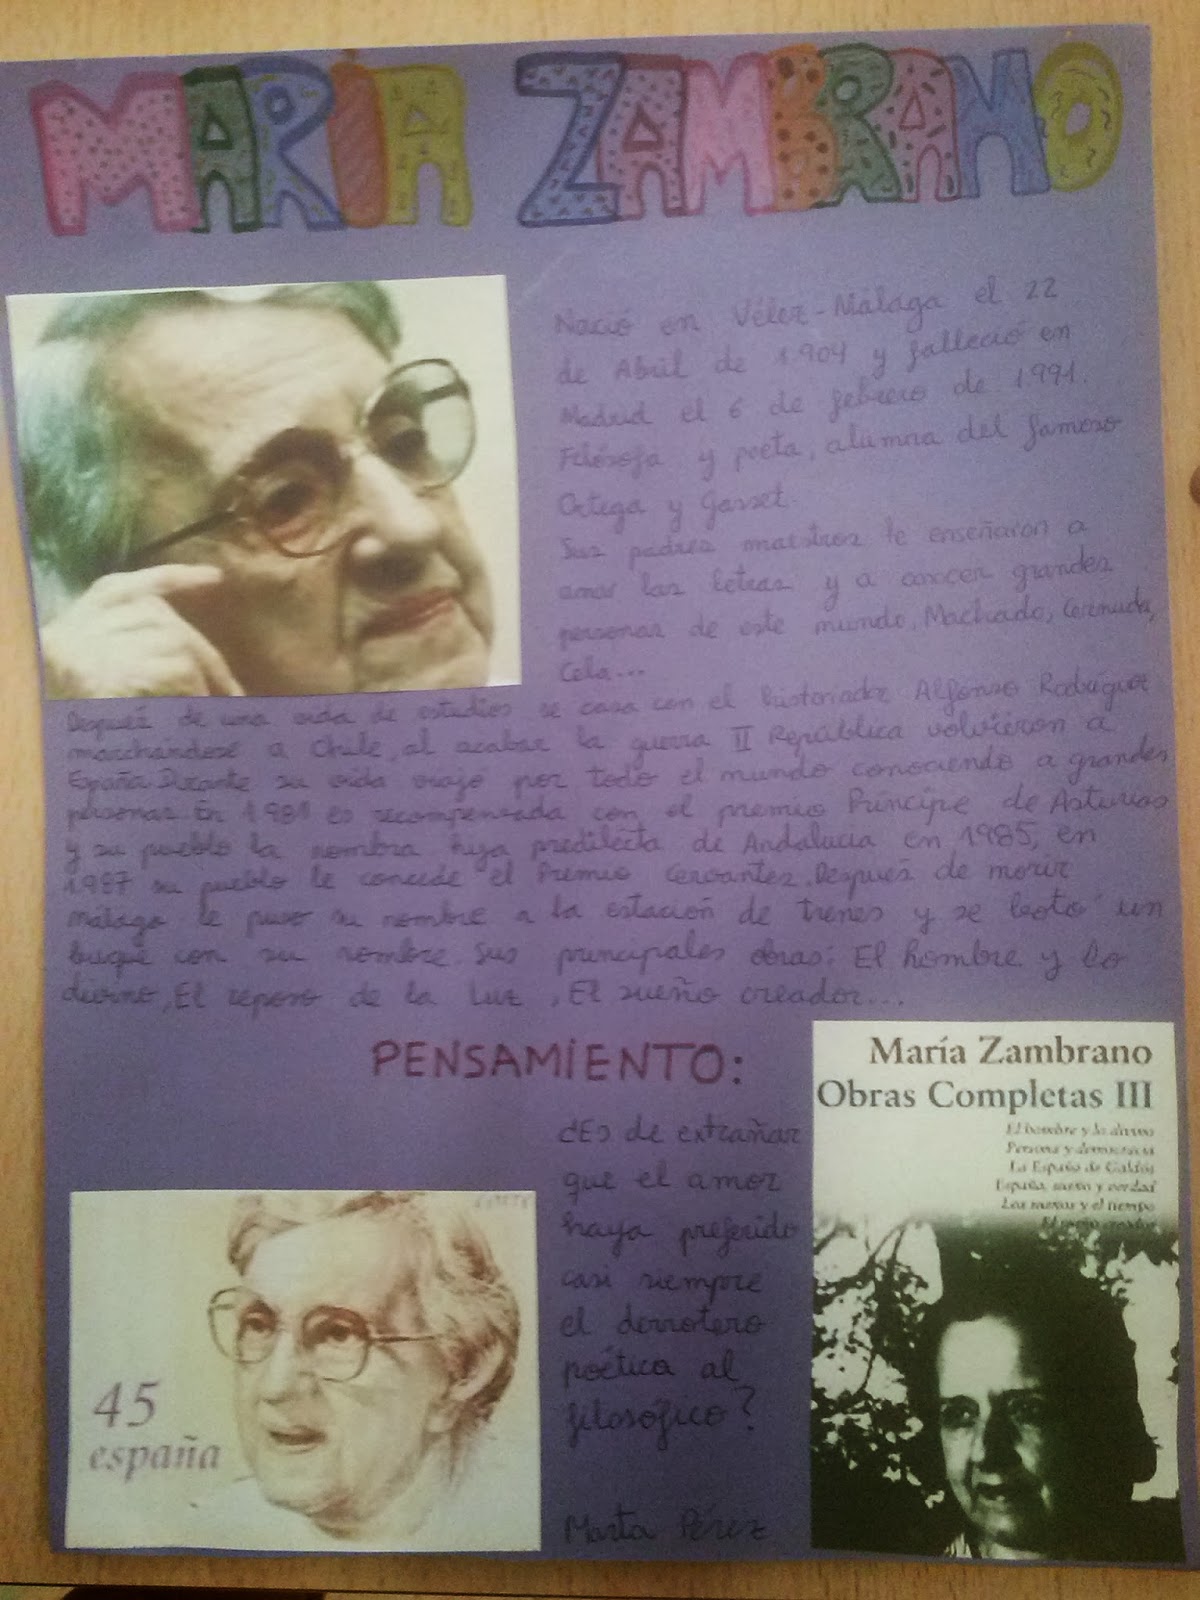 MARÍA ZAMBRANO
Nació en Vélez-Málaga el 22
de Abril de 1.904 y falleció en
Madrid el 6 de febrero de 1991.
Filósofa y poeta, alumna del famoso
Ortega y Gasset.
Sus padres maestros le enseñaron a
amar las letras y a conocer grandes
personas de este mundo, Machado, Cernuda,
Cela...
Después de una vida de estudios se casa con el historiador Alfonso Rodríguez
marchándose a Chile, al acabar la guerra II República volvieron a
España. Durante su vida viajó por todo el mundo conociendo a grandes
personas. En 1981 es recompensada con el premio Príncipe de Asturias
y su pueblo la nombra hija predilecta de Andalucía en 1985, en
1.987 su pueblo le concede el Premio Cervantes. Después de morir
Málaga le puso su nombre a la estación de trenes y se botó un
buque con su nombre. Sus principales obras: El hombre y lo
divino, El reposo de la Luz, El sueño creador...
PENSAMIENTO:
¿Es de extrañar
que el amor
haya preferido
casi siempre
el derrotero
poética al
filosófico?
Marta Pérez
45
españa
María Zambrano
Obras Completas III
El hombre y lo divino
Persona y democracia
La España de Galdós
España, sueño y verdad
Los sueños y el tiempo
El sueño creador